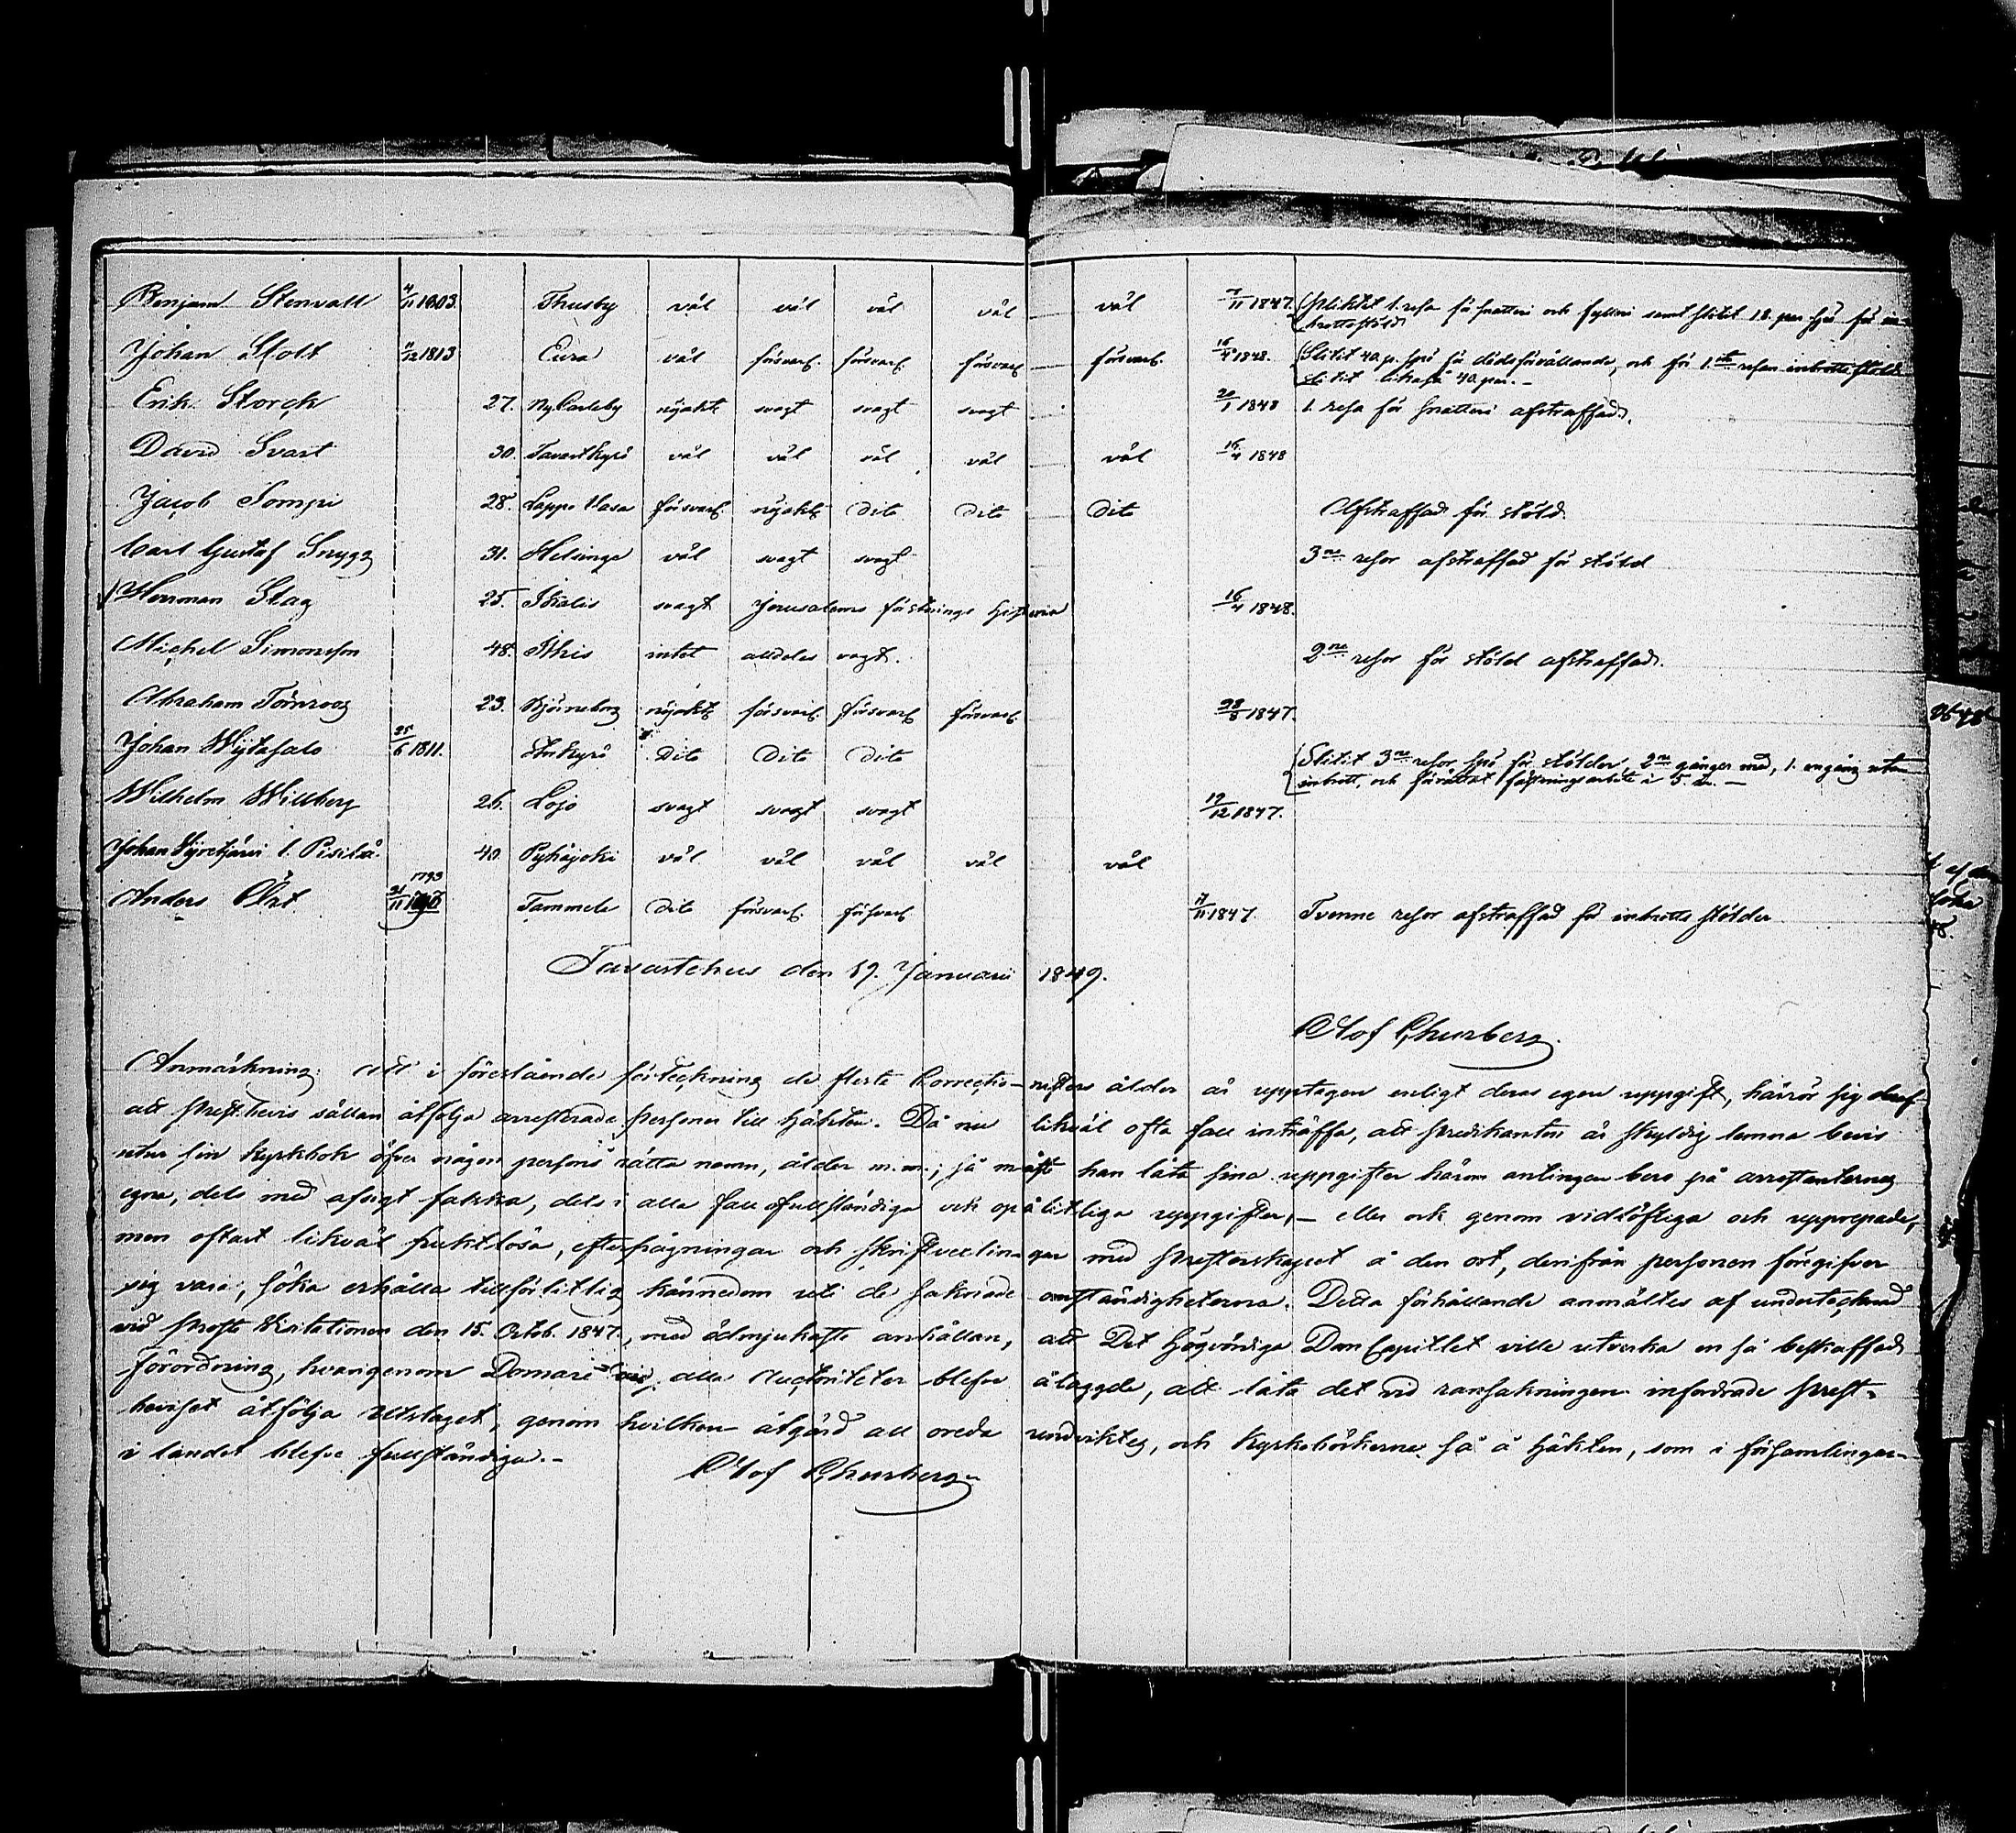 Benjam Stenvall 4/11 1803. Thusby väl väl väl väl väl 7/11 1847. Pliktat 1. resa för snatteri och fylleri samt slitit 18. par spö för in-
brottsstöld.
Johan Stolt 11/12 1813 Eura väl försvarl. försvarl. försvarl. försvarl. 16/4 1848. Slitit 40 p. spö för dödsförvållande, och för 1.sta resan inbrottsstöld
slitit likaså 40 par. -
Erik Storck 27. NyCarleby nöjakte svagt svagt svagt 20/1 1848 1. resa för snatteri afstraffad.
David Svart 30. Tavastkyrö väl väl väl väl väl 16/4 1848
Jacob Sompi 28. Lappo Wasa försvarl. nöjakt. dito dito dito Afstraffad för stöld.
Carl Gustaf Snygg 31. Helsinge väl svagt svagt 3ne resor afstraffad för stöld
Herrman Stag 25. Ikalis svagt Jerusalems förstörings Historia 16/4 1848.
Michel Simonsson 48. Ithis intet alldeles svagt. 2ne resor för stöld afstraffad.
Abraham Törnroos 23. Björneborg nöjakt. försvarl. försvarl. försvarl. 28/8 1847.
Johan Wijtasalo 25/6 1811. Storkyrö dito dito dito Slitit 3ne resor spö för stölder, 2ne gånger med, 1. en gång utan
inbrott, och förrättat fästningsarbete i 5. år. -
Wilhelm Willberg 26. Lojo svagt svagt svagt 19/12 1847.
Johan Pisilä. 40. Pyhäjoki väl väl väl väl väl
Anders 31/11 1793 Tammela dito försvarl. försvarl. 7/11 1847. Tvenne resor afstraffad för inbrotts stölder
Tavastehus den 19. Januarii 1849.
Olof Churberg.
Anmärkning: att i förestående förteckning de fleste Correctionisters ålder är upptagen enligt deras egen uppgift, härrör sig deraf
att Prestbevis sällan åtfölja arresterade personer till häkten. Då nu likväl ofta fall inträffa, att Predikanten är skyldig lemna bevis
utur sin kyrkbok öfver någon persons rätta namn, ålder m.m.; så måste han låta sina uppgifter härom antingen bero på arrestanternes
egna, dels med afsigt falska, dels i alla fall ofullständiga och opålitliga uppgifter, - eller ock genom vidlöftiga och upprepade,
men oftast likväl fruktlösa, efterfrågningar och skriftvexlingar med Presterskapet å den ort, derifrån personen föregifver
sig vara, söka erhålla tillförlitlig kännedom uti de saknade omständigheterna. Detta förhållande anmältes af undertecknad
vid Prosts Visitationen den 15. Octob. 1847., med ödmjukaste anhållan, att Det Högvördiga DomCapitlet ville utverka en så beskaffad
förordning, hvarigenom Domare alla Auctoriteter blefve ålagde, att låta det vid ransakningen infordrade Prest-
beviset åtfölja Utslaget, genom hvilken åtgärd all oreda undviktes, och Kyrkoböckerne så å häkten, som i församlingar
i landet blefve fullständiga. -
Olof Churberg